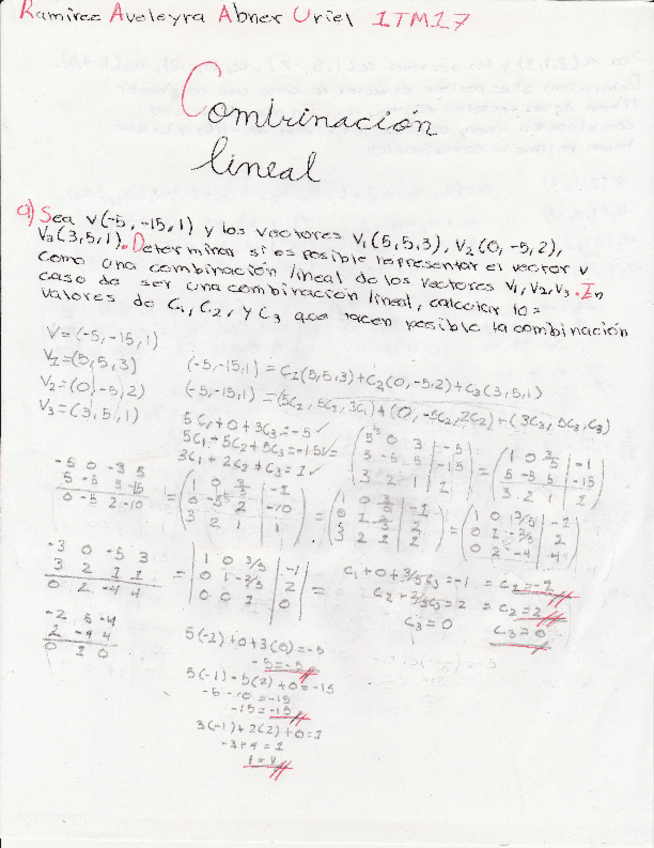 Ramirez Aveleyra Abner Uriel 1TM17
Combinación
lineal
a) Sea v(-5, -15, 1) y los vectores V₁(5,5,3), V₂(0, -5, 2),
V₃(3,5,1). Determinar si es posible representar el vector v
como una combinación lineal de los vectores V₁, V₂, V₃. In
caso de ser una combinación lineal, calcular lo=
valores de C₁, C₂, y C₃ que hacen posible la combinación
V=(-5,-15,1)
V1=(5,5,3)
V2=(0,-5,2)
V3=(3,5,1)
(-5,-15,1) = C1(5,5,3)+C2(0,-5,2)+C3(3,5,1)
(-5,-15,1) = (5C2, 5C2, 3C1)+(0, -5C2, 2C2)+(3C3, 5C3, C3)
5C1+0+3C3=-5 ✓
5C1-5C2+5C3=-15 ✓
3C1+2C2+C3=1 ✓
= (5 0 3 | -5
5 -5 5 | -15
3 2 1 | 1)
= (1 0 3/5 | -1
5 -5 5 | -15
3 2 1 | 1)
-5 0 -3 5
5 -5 5 -15
0 -5 2 -10
= (1 0 3/5 | -1
0 -5 2 | -10
3 2 1 | 1)
= (1 0 3/5 | -1
0 1 -2/5 | 2
3 2 1 | 1)
= (1 0 3/5 | -1
0 1 -2/5 | 2
0 2 -4 | 4)
-3 0 -5 3
3 2 1 1
0 2 -4 4
= |1 0 3/5 | -1
0 1 -2/5 | 2
0 0 1 | 0|
= C1+0+3/5C3=-1
C2-2/5C3=2 = C2=2
C3=0 C3=0
-2 5 -4
2 -4 4
0 1 0
5(-1)+0+3(0)=-5
-5=-5
5(-1)-5(2)+0=-15
-5-10=-15
-15=-15
3(-1)+2(2)+0=1
-3+4=1